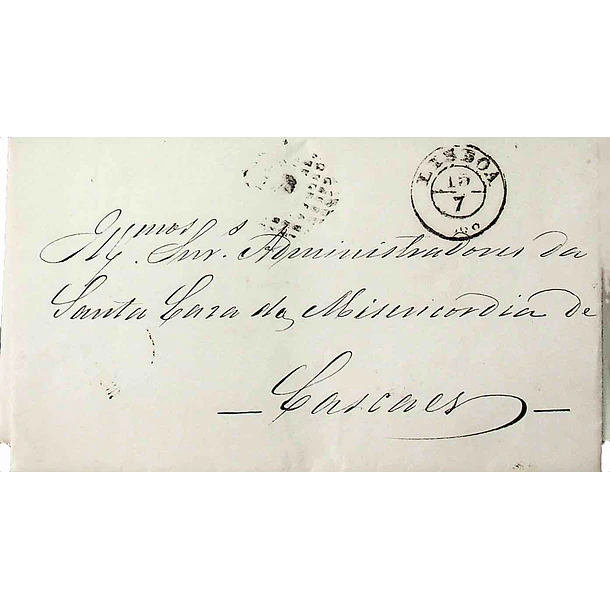 LISBOA
15
7
Ill.mos Snr.s Administradores da
Santa Caza da Misericordia de
— Cascaes —